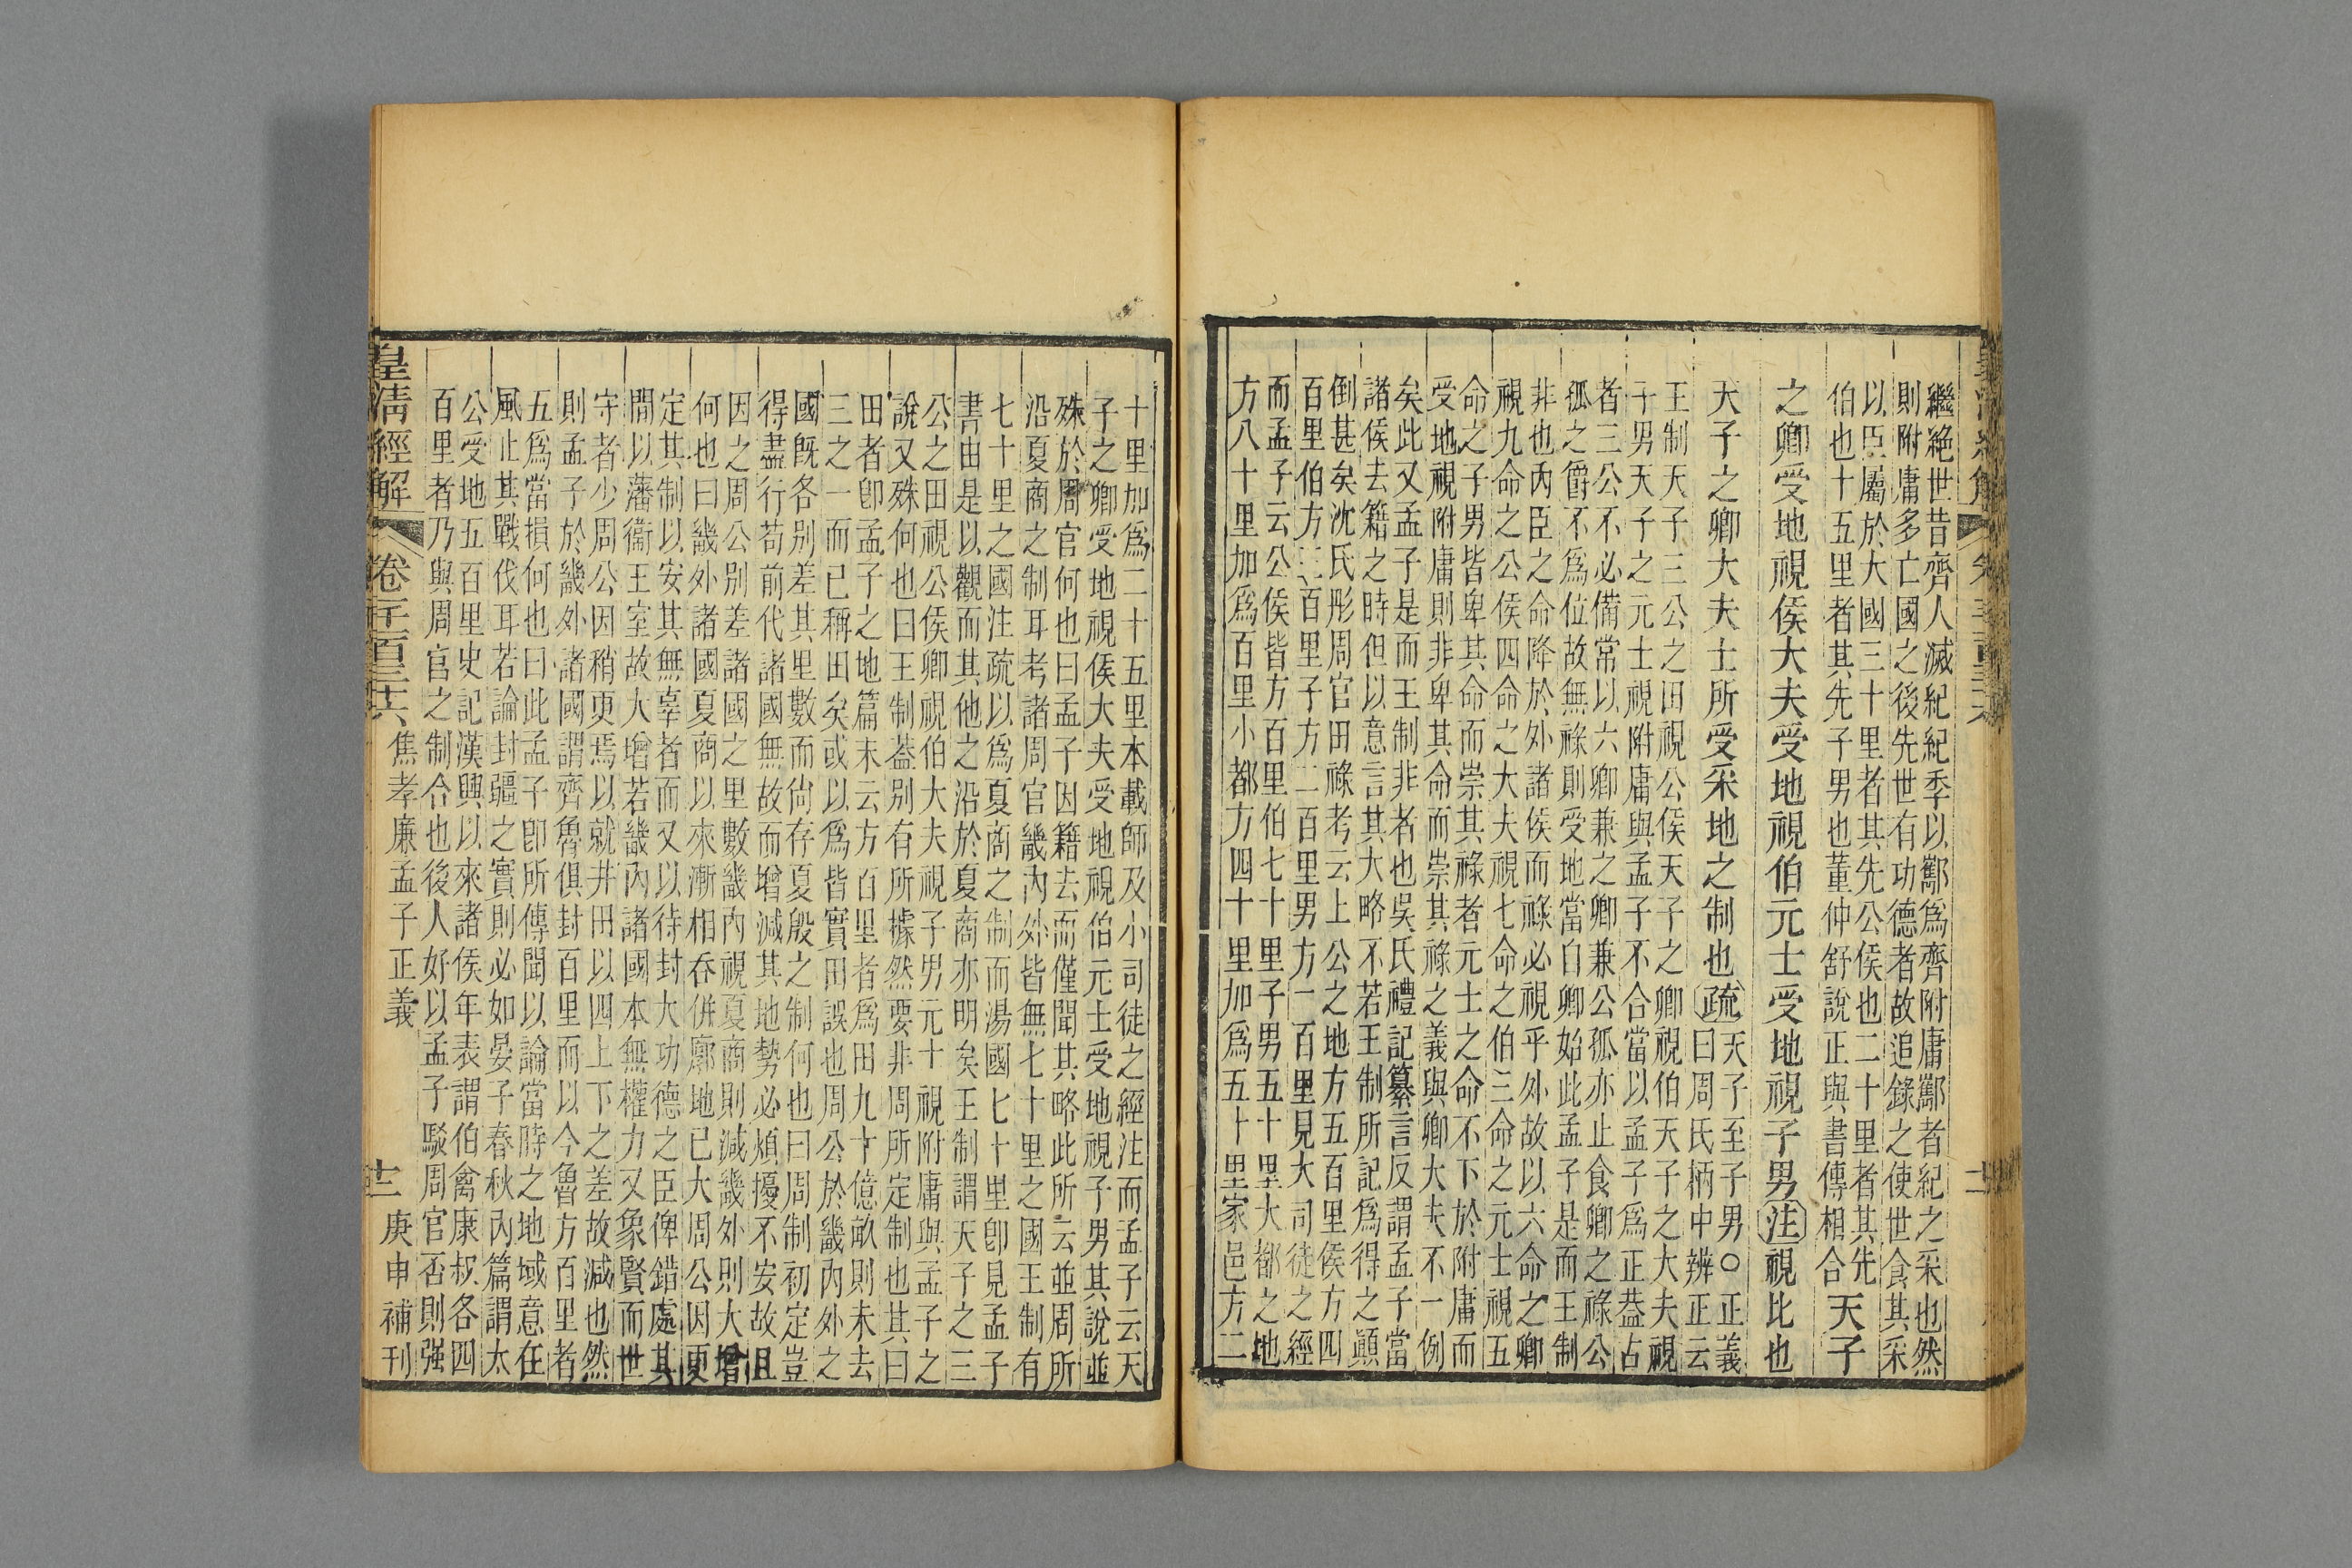 繼絶世昔齊人滅紀紀季以酅爲齊附庸酅者紀之采也然
則附庸多亡國之後先世有功德者故追錄之使世食其采
以臣屬於大國三十里者其先公侯也二十里者其先
伯也十五里者其先子男也董仲舒說正與書傳相合天子
之卿受地視侯大夫受地視伯元士受地視子男注視比也
天子之卿大夫士所受采地之制也疏天子至子男○正義
曰周氏柄中辨正云
王制天子三公之田視公侯天子之卿視伯天子之大夫視
子男天子之元士視附庸與孟子不合當以孟子爲正葢古
者三公不必備常以六卿兼之卿兼公孤亦止食卿之祿公
孤之爵不爲位故無祿則受地當自卿始此孟子是而王制
非也內臣之命降於外諸侯而祿必視乎外故以六命之卿
視九命之公侯四命之大夫視七命之伯三命之元士視五
命之子男皆卑其命而崇其祿者元士之命不下於附庸而
受地視附庸則非卑其命而崇其祿之義與卿大夫不一例
矣此又孟子是而王制非者也吳氏禮記纂言反謂孟子當
諸侯去籍之時但以意言其大略不若王制所記爲得之顚
倒甚矣沈氏彤周官田祿考云上公之地方五百里侯方四
百里伯方三百里子方二百里男方一百里見大司徒之經
而孟子云公侯皆方百里伯七十里子男五十里大都之地
方八十里加爲百里小都方四十里加爲五十里家邑方二
皇清經解
卷千百三十六
十里加爲二十五里本載師及小司徒之經注而孟子云天
子之卿受地視侯大夫受地視伯元士受地視子男其說並
殊於周官何也曰孟子因籍去而僅聞其略此所云並周所
沿夏商之制耳考諸周官畿內外皆無七十里之國王制有
七十里之國注疏以爲夏商之制而湯國七十里卽見孟子
書由是以觀而其他之沿於夏商亦明矣王制謂天子之三
公之田視公侯卿視伯大夫視子男元士視附庸與孟子之
說又殊何也曰王制葢別有所據然要非周所定制也其曰
田者卽孟子之地篇末云方百里者爲田九十億畝則未去
三之一而已稱田矣或以爲皆實田誤也周公於畿內外之
國旣各別差其里數而尙存夏殷之制何也曰周制初定豈
得盡行苟前代諸國無故而增減其地勢必煩擾不安故且
因之周公別差諸國之里數畿內視夏商則減畿外則大增
何也曰畿外諸國夏商以來漸相吞併廓地已大周公因更
定其制以安其無辜者而又以待封大功德之臣俾錯處其
閒以藩衞王室故大增若畿內諸國本無權力又象賢而世
守者少周公因稍更焉以就井田以四上下之差故減也然
則孟子於畿外諸國謂齊魯俱封百里而以今魯方百里者
五爲當損何也曰此孟子卽所傳聞以論當時之地域意在
風止其戰伐耳若論封疆之實則必如晏子春秋內篇謂太
公受地五百里史記漢興以來諸侯年表謂伯禽康叔各四
百里者乃與周官之制合也後人好以孟子駁周官否則强
皇清經解
卷千百三十六
焦孝廉孟子正義
十二
庚申補刊